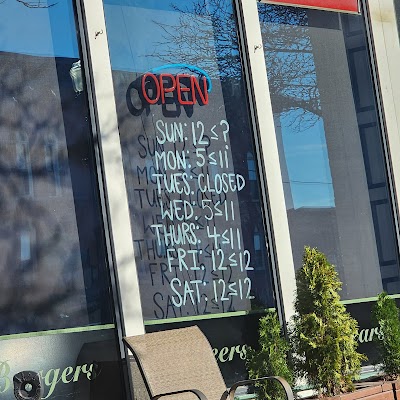 OPEN
SUN: 12 ≤ ?
MON: 5 ≤ 11
TUES: CLOSED
WED: 5 ≤ 11
THURS: 4 ≤ 11
FRI: 12 ≤ 12
SAT: 12 ≤ 12
Burgers